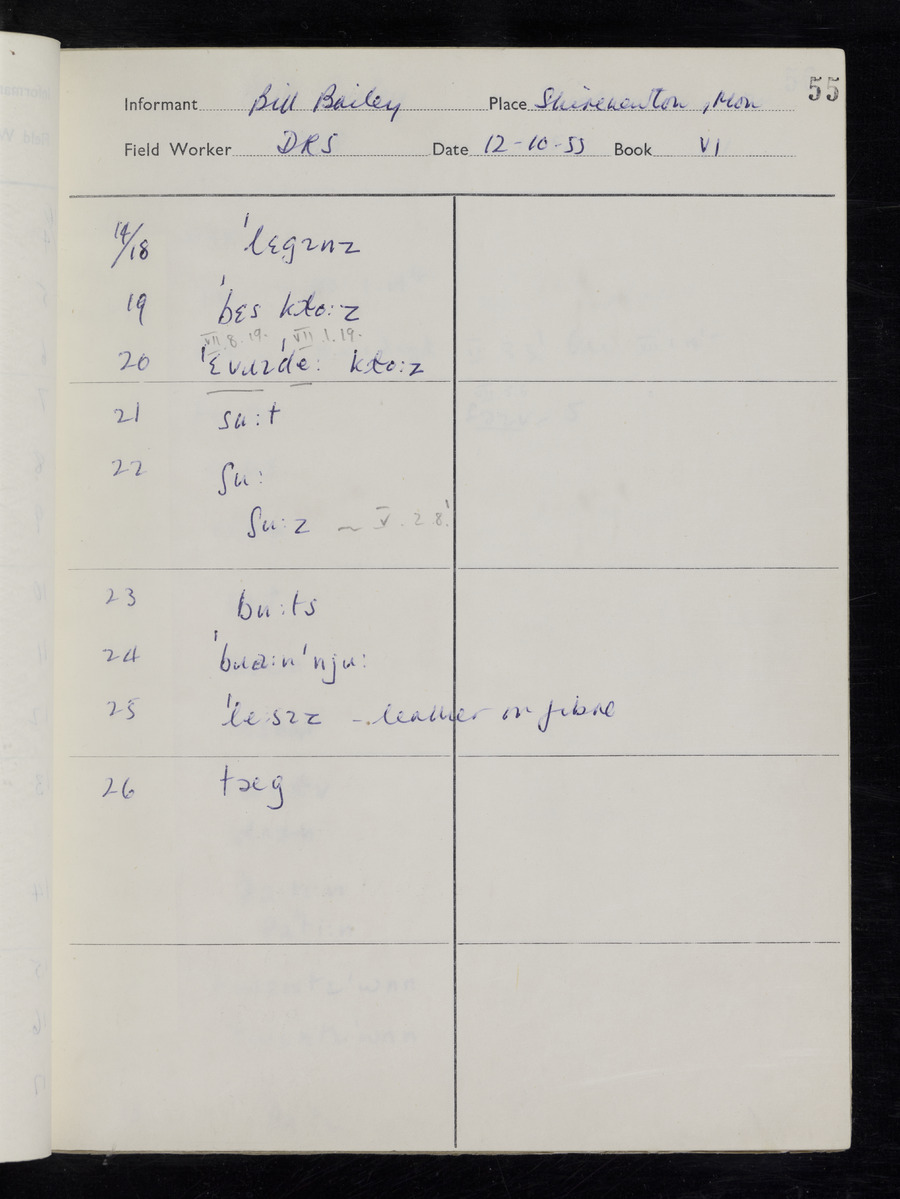 55
Informant Bill Bailey Place Shirenewton, Mon
Field Worker DRS Date 12-10-55 Book VI
14/18 ˈlegɪnz
19 ˈbɛs klo:z
VII.8.19. VII.1.19.
20 ˈɛvɹɪˈde: klo:z
21 su:t
22 ʃu:
ʃu:z ~ V.2.8.
23 bu:ts
24 ˈbɹa:nˈnju:
25 ˈle:sɪz - leather or fibre
26 tæg